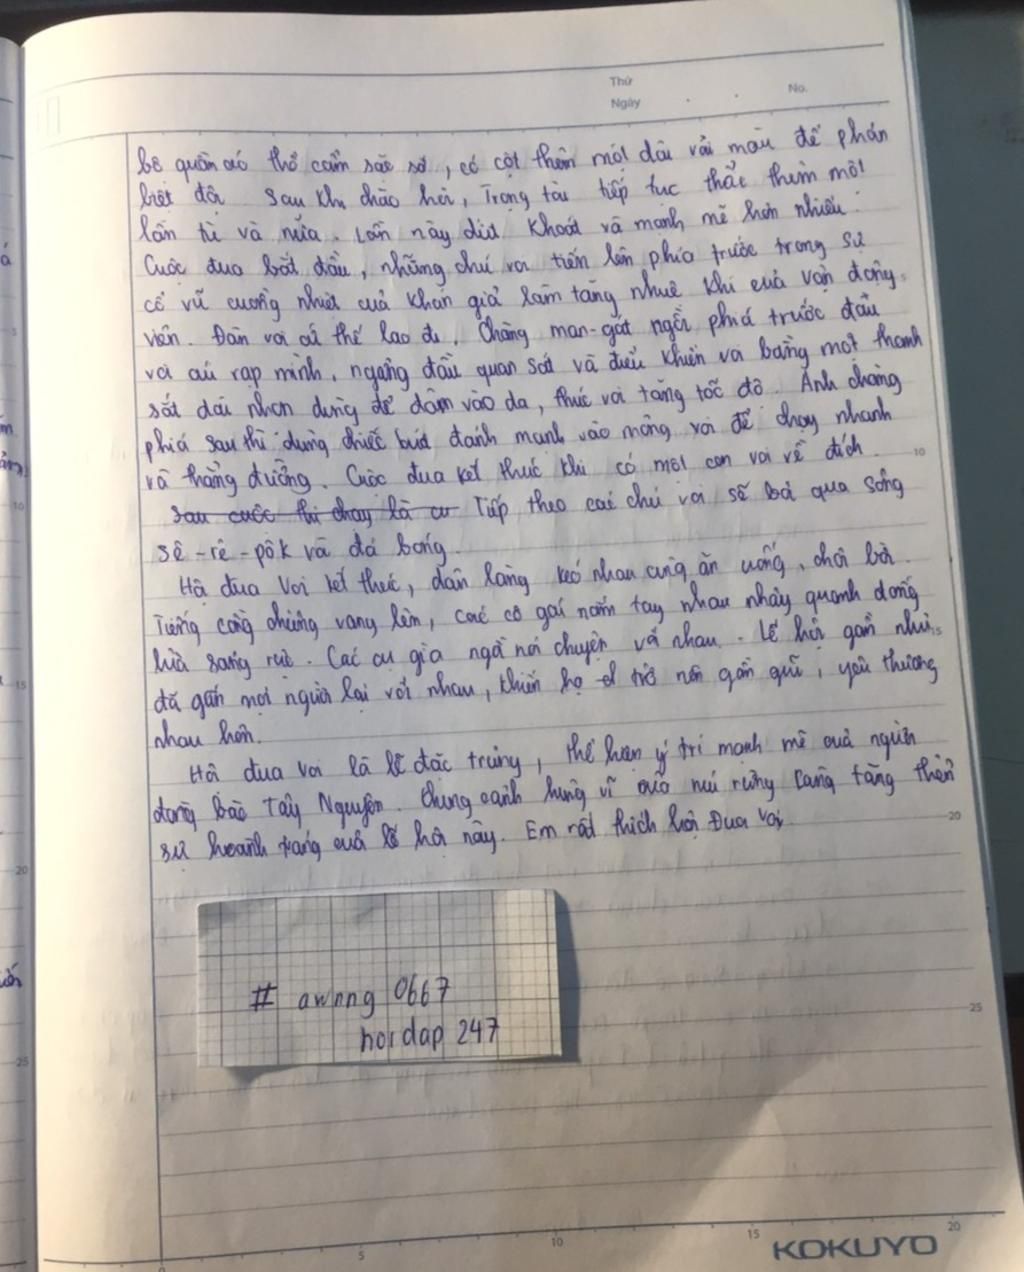 Thứ
Ngày
No.
bộ quần áo thổ cẩm sặc sỡ, có cột thêm một dải vải màu để phân
biệt đội. Sau khi chào hỏi, Trọng tài tiếp tục thổi thêm một
lần tù và nữa. Lần này dứt khoát và mạnh mẽ hơn nhiều.
Cuộc đua bắt đầu, những chú voi tiến lên phía trước trong sự
cổ vũ cuồng nhiệt của khán giả làm tăng nhuệ khí của vận động
viên. Đàn voi cứ thế lao đi. Chàng man-gát ngồi phía trước đầu
voi cúi rạp mình, ngẩng đầu quan sát và điều khiển voi bằng một thanh
sắt dài nhọn dùng để đâm vào da, thúc voi tăng tốc độ. Anh chàng
phía sau thì dùng chiếc búa đánh mạnh vào mông voi để chạy nhanh
và thẳng đường. Cuộc đua kết thúc khi có một con voi về đích.
sau cuộc thi chạy là cu Tiếp theo các chú voi sẽ bơi qua sông
Sê-rê-pôk và đá bóng.
Hội đua voi kết thúc, dân làng kéo nhau cùng ăn uống, chơi bời.
Tiếng cồng chiêng vang lên, các cô gái nắm tay nhau nhảy quanh đống
lửa sáng rực. Các cụ già ngồi nói chuyện với nhau. Lễ hội gần như
đã gắn mọi người lại với nhau, khiến họ trở nên gần gũi, yêu thương
nhau hơn.
Hội đua voi là lễ đặc trưng, thể hiện ý trí mạnh mẽ của người
đồng bào Tây Nguyên. Khung cảnh hùng vĩ của núi rừng càng tăng thêm
sự hoành tráng của lễ hội này. Em rất thích hội Đua voi.
# awnng 0667
hoidap 247
5
10
15
20
KOKUYO